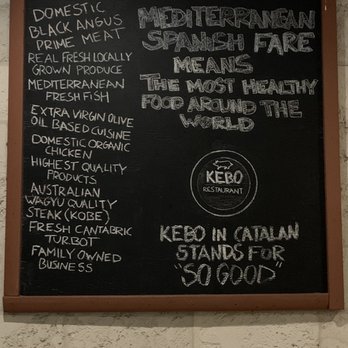 DOMESTIC
BLACK ANGUS
PRIME MEAT
REAL FRESH LOCALLY
GROWN PRODUCE
MEDITERRANEAN
FRESH FISH
EXTRA VIRGIN OLIVE
OIL BASED CUISINE
DOMESTIC ORGANIC
CHICKEN
HIGHEST QUALITY
PRODUCTS
AUSTRALIAN
WAGYU QUALITY
STEAK (KOBE)
FRESH CANTABRIC
TURBOT
FAMILY OWNED
BUSINESS
MEDITERRANEAN
SPANISH FARE
MEANS
THE MOST HEALTHY
FOOD AROUND THE
WORLD
KEBO
RESTAURANT
KEBO IN CATALAN
STANDS FOR
"SO GOOD"